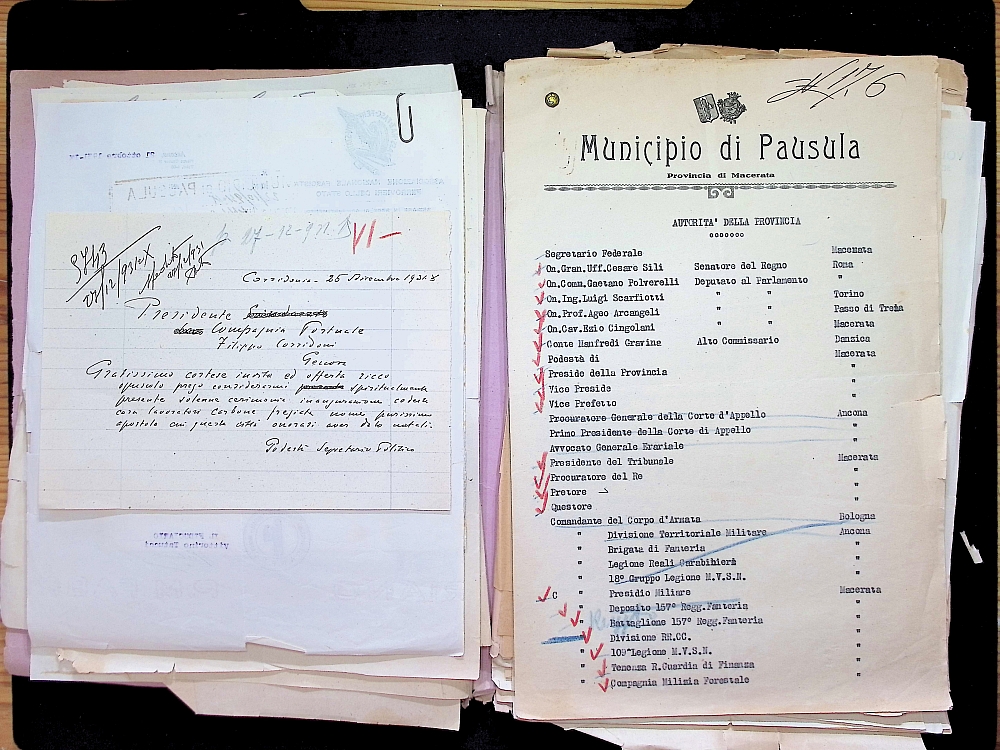 17-12-931
VI-
3743
22/12/931 X
Corridonia - 25 Dicembre 1931-X
Presidente
Compagnia Portuale
Filippo Corridoni
Genova
Gratissimo cortese invito ed offerta ricco
opuscolo prego considerarmi spiritualmente
presente solenne cerimonia inaugurazione codesta
casa lavoratori carbone fregiata nome purissimo
apostolo cui questa città onorasi aver dato natali.
Podestà Segretario Politico
21 ottobre
Municipio di Pausula
Provincia di Macerata
AUTORITA' DELLA PROVINCIA
ooooooo
Segretario Federale Macerata
On.Gran.Uff.Cesare Sili Senatore del Regno Roma
On.Comm.Gaetano Polverelli Deputato al Parlamento "
On.Ing.Luigi Scarfiotti " " Torino
On.Prof.Ageo Arcangeli " " Passo di Treia
On.Cav.Ezio Cingolani " " Macerata
Conte Manfredi Gravina Alto Commissario Danzica
Podestà di Macerata
Preside della Provincia "
Vice Preside "
Vice Prefetto "
Procuratore Generale della Corte d'Appello Ancona
Primo Presidente della Corte di Appello "
Avvocato Generale Erariale "
Presidente del Tribunale Macerata
Procuratore del Re "
Pretore "
Questore "
Comandante del Corpo d'Armata Bologna
" Divisione Territoriale Militare Ancona
" Brigata di Fanteria "
" Legione Reali Carabinieri "
" 18° Gruppo Legione M.V.S.N. "
C " Presidio Miliare Macerata
" Deposito 157° Regg.Fanteria "
" Battaglione 157° Regg.Fanteria "
" Divisione RR.CC. "
" 109^Legione M.V.S.N. "
" Tenenza R.Guardia di Finanza "
" Compagnia Milizia Forestale "